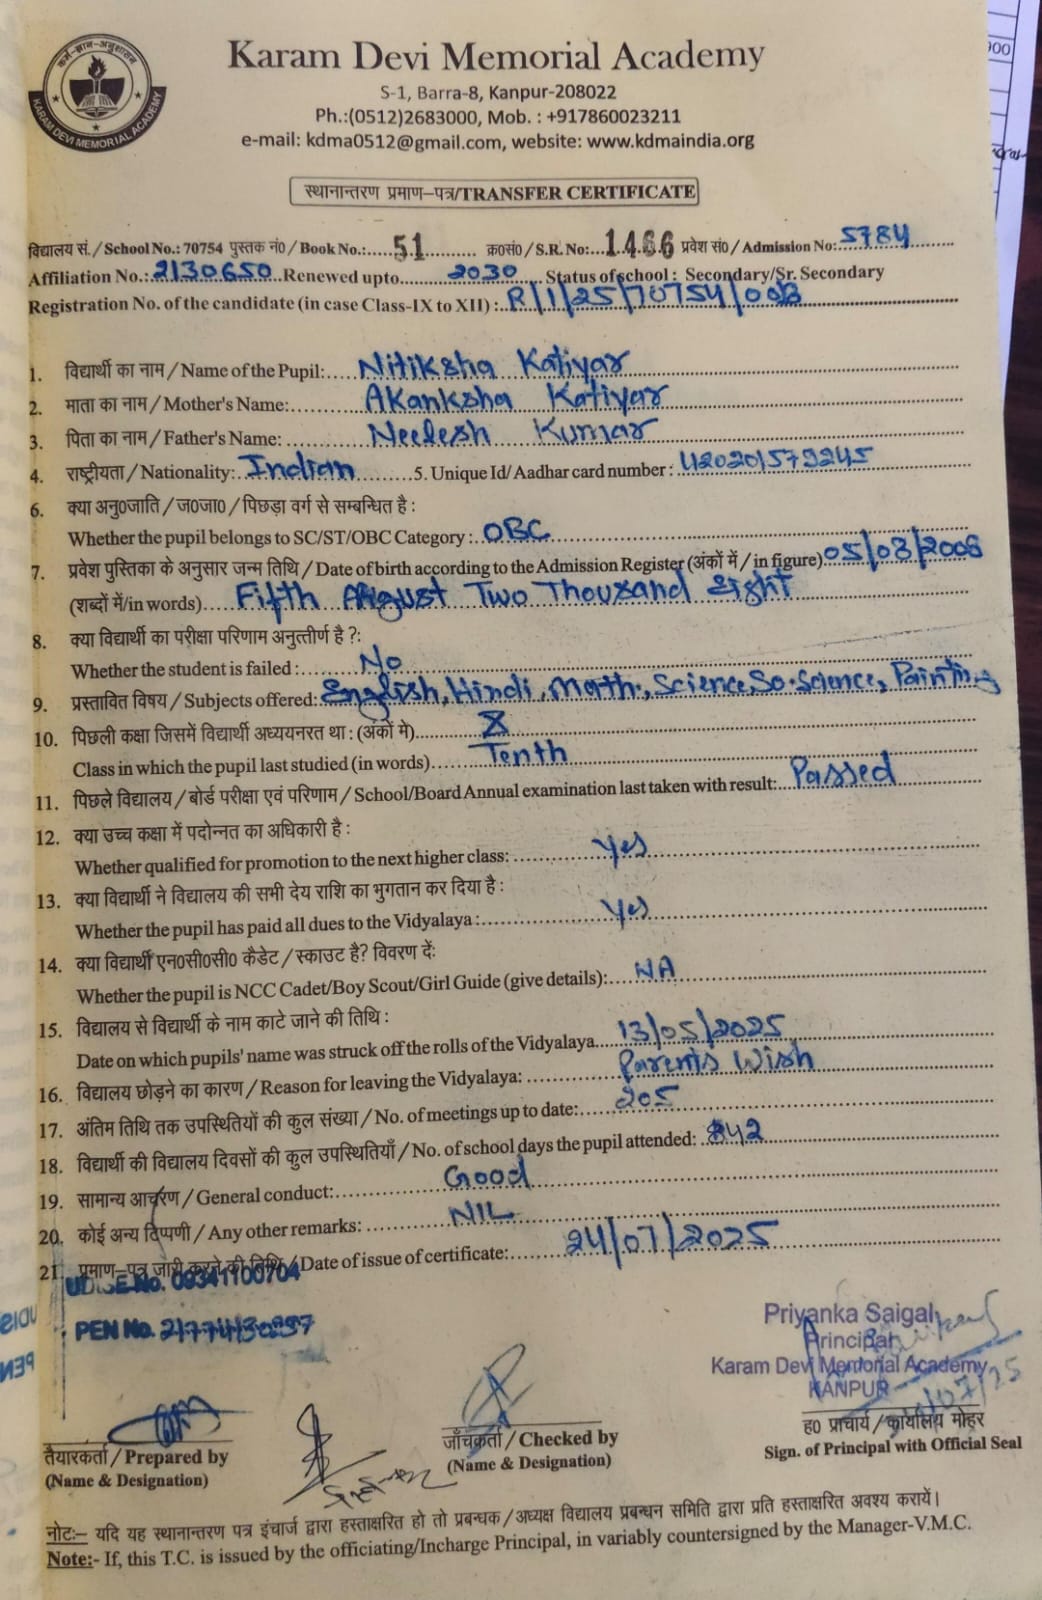 कर्म-ज्ञान-अनुशासन
KARAM DEVI MEMORIAL ACADEMY
Karam Devi Memorial Academy
S-1, Barra-8, Kanpur-208022
Ph.:(0512)2683000, Mob. : +917860023211
e-mail: kdma0512@gmail.com, website: www.kdmaindia.org
स्थानान्तरण प्रमाण-पत्र/TRANSFER CERTIFICATE
विद्यालय सं./School No.: 70754 पुस्तक नं०/Book No.:....51.......... क्र०सं०/S.R. No: 1466 प्रवेश सं०/Admission No: 5784
Affiliation No.: 2130650 Renewed upto........2030.... Status of school : Secondary/Sr. Secondary
Registration No. of the candidate (in case Class-IX to XII) :..R/1/25/70754/0
1. विद्यार्थी का नाम/Name of the Pupil:....Nitiksha Katiyar
2. माता का नाम/Mother's Name:........Akanksha Katiyar
3. पिता का नाम/Father's Name: ........Neelesh Kumar
4. राष्ट्रीयता/Nationality: Indian ........5. Unique Id/Aadhar card number : 420201579245
6. क्या अनु०जाति/ज०जा०/पिछड़ा वर्ग से सम्बन्धित है :
Whether the pupil belongs to SC/ST/OBC Category : OBC
7. प्रवेश पुस्तिका के अनुसार जन्म तिथि/Date of birth according to the Admission Register (अंकों में/in figure) 05/08/2008
(शब्दों में/in words)....Fifth August Two Thousand Eight
8. क्या विद्यार्थी का परीक्षा परिणाम अनुत्तीर्ण है ?:
Whether the student is failed :........No
9. प्रस्तावित विषय/Subjects offered: English, Hindi, Math., Science, So. Science, Painting
10. पिछली कक्षा जिसमें विद्यार्थी अध्ययनरत था : (अंकों मे)........X
Class in which the pupil last studied (in words)........Tenth
11. पिछले विद्यालय/बोर्ड परीक्षा एवं परिणाम/School/Board Annual examination last taken with result: Passed
12. क्या उच्च कक्षा में पदोन्नत का अधिकारी है :
Whether qualified for promotion to the next higher class: ........Yes
13. क्या विद्यार्थी ने विद्यालय की सभी देय राशि का भुगतान कर दिया है :
Whether the pupil has paid all dues to the Vidyalaya :........Yes
14. क्या विद्यार्थी एन०सी०सी० कैडेट/स्काउट है? विवरण दें:
Whether the pupil is NCC Cadet/Boy Scout/Girl Guide (give details):....NA
15. विद्यालय से विद्यार्थी के नाम काटे जाने की तिथि :
Date on which pupils' name was struck off the rolls of the Vidyalaya....13/05/2025
16. विद्यालय छोड़ने का कारण/Reason for leaving the Vidyalaya: ........Parents Wish
17. अंतिम तिथि तक उपस्थितियों की कुल संख्या/No. of meetings up to date:....205
18. विद्यार्थी की विद्यालय दिवसों की कुल उपस्थितियाँ/No. of school days the pupil attended:
19. सामान्य आचरण/General conduct:........Good
20. कोई अन्य टिप्पणी/Any other remarks: ........NIL
21. प्रमाण-पत्र जारी करने की तिथि/Date of issue of certificate:........24/07/2025
UDISE No. 09341100704
PEN No.
Priyanka Saigal
Principal
Karam Devi Memorial Academy
KANPUR
तैयारकर्ता/Prepared by
(Name & Designation)
जाँचकर्ता/Checked by
(Name & Designation)
ह० प्राचार्य/कार्यालय मोहर
Sign. of Principal with Official Seal
नोट:- यदि यह स्थानान्तरण पत्र इंचार्ज द्वारा हस्ताक्षरित हो तो प्रबन्धक/अध्यक्ष विद्यालय प्रबन्धन समिति द्वारा प्रति हस्ताक्षरित अवश्य करायें।
Note:- If, this T.C. is issued by the officiating/Incharge Principal, in variably countersigned by the Manager-V.M.C.